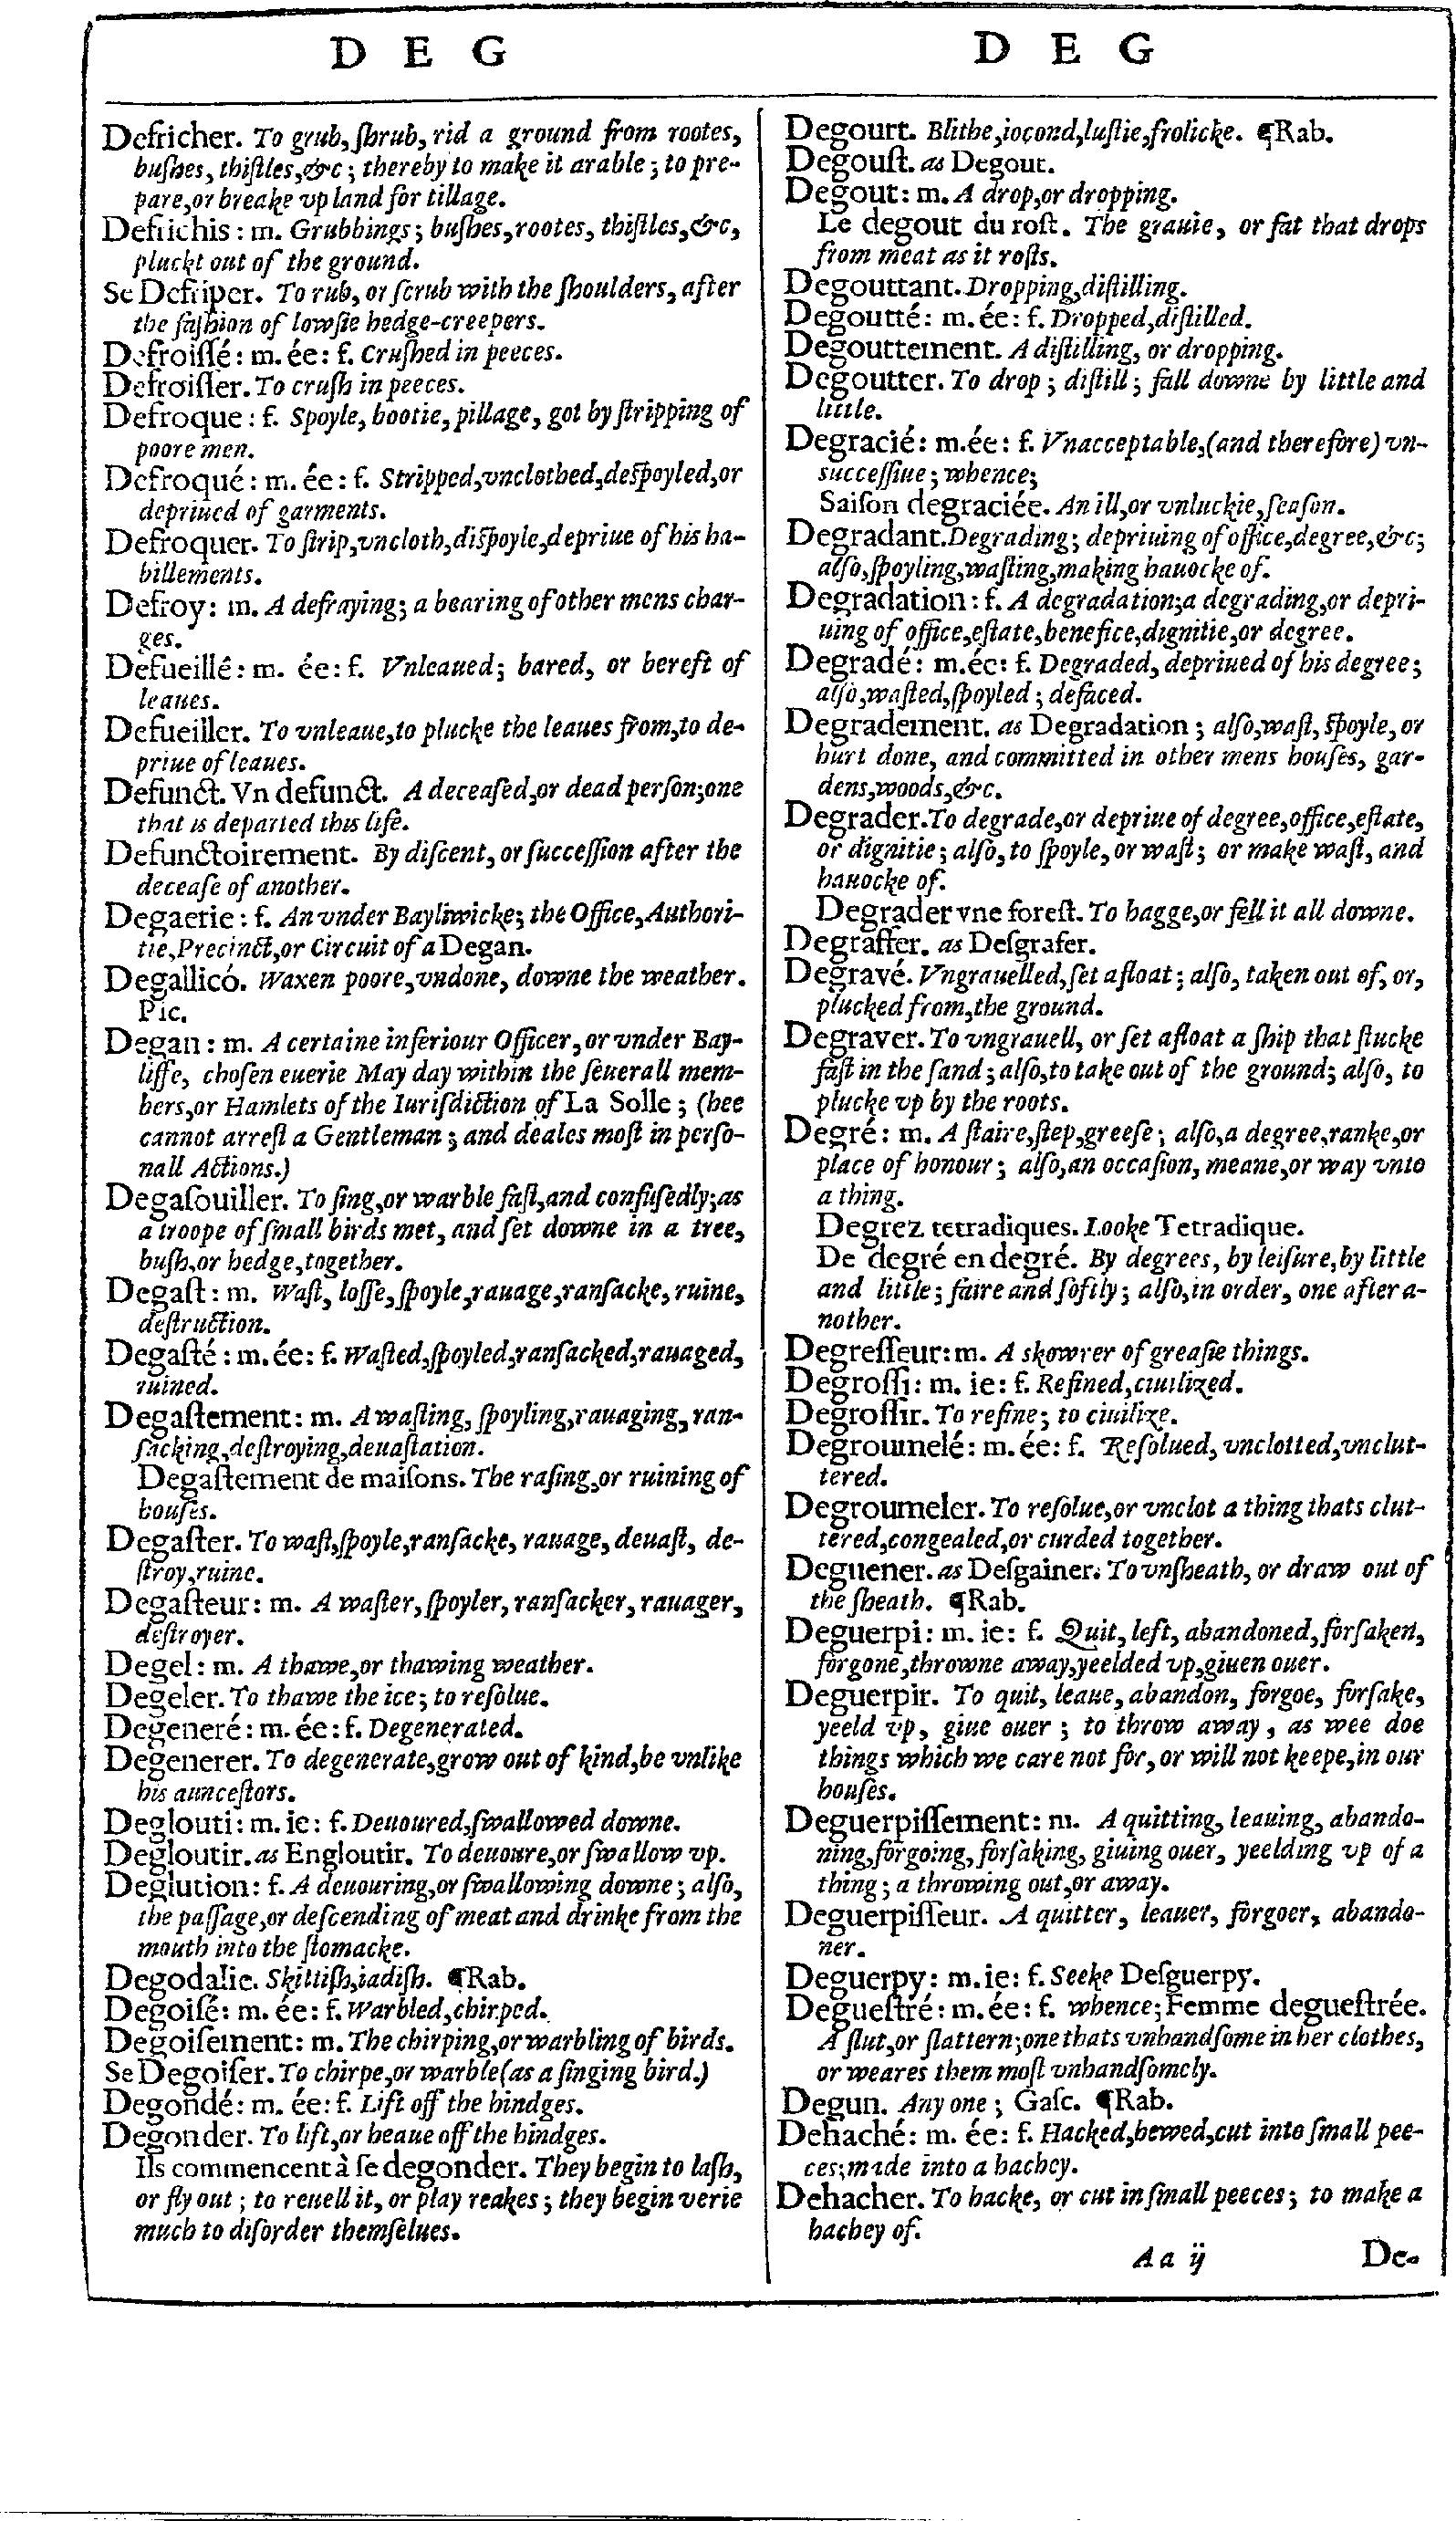 D E G
Defricher. To grub, ſhrub, rid a ground from rootes,
buſhes, thiſtles, &c; thereby to make it arable; to pre-
pare, or breake vp land for tillage.
Defrichis: m. Grubbings; buſhes, rootes, thiſtles, &c,
pluckt out of the ground.
Se Defriper. To rub, or ſcrub with the ſhoulders, after
the faſhion of lowſie hedge-creepers.
Defroiſſé: m. ée: f. Cruſhed in peeces.
Defroiſſer. To cruſh in peeces.
Defroque: f. Spoyle, bootie, pillage, got by ſtripping of
poore men.
Defroqué: m. ée: f. Stripped, vnclothed, deſpoyled, or
depriued of garments.
Defroquer. To ſtrip, vncloth, diſpoyle, depriue of his ha-
billements.
Defroy: m. A defraying; a bearing of other mens char-
ges.
Defueillé: m. ée: f. Vnleaued; bared, or bereft of
leaues.
Defueiller. To vnleaue, to plucke the leaues from, to de-
priue of leaues.
Defunct. Vn defunct. A deceaſed, or dead perſon; one
that is departed this life.
Defunctoirement. By diſcent, or ſucceſſion after the
deceaſe of another.
Degaerie: f. An vnder Bayliwicke; the Office, Authori-
tie, Precinct, or Circuit of a Degan.
Degallicó. Waxen poore, vndone, downe the weather.
Pic.
Degan: m. A certaine inferiour Officer, or vnder Bay-
liffe, choſen euerie May day within the ſeuerall mem-
bers, or Hamlets of the Iuriſdiction of La Solle; (hee
cannot arreſt a Gentleman; and deales moſt in perſo-
nall Actions.)
Degaſouiller. To ſing, or warble faſt, and confuſedly; as
a troope of ſmall birds met, and ſet downe in a tree,
buſh, or hedge, together.
Degaſt: m. Waſt, loſſe, ſpoyle, rauage, ranſacke, ruine,
deſtruction.
Degaſté: m. ée: f. Waſted, ſpoyled, ranſacked, rauaged,
ruined.
Degaſtement: m. A waſting, ſpoyling, rauaging, ran-
ſacking, deſtroying, deuaſtation.
Degaſtement de maiſons. The raſing, or ruining of
houſes.
Degaſter. To waſt, ſpoyle, ranſacke, rauage, deuaſt, de-
ſtroy, ruine.
Degaſteur: m. A waſter, ſpoyler, ranſacker, rauager,
deſtroyer.
Degel: m. A thawe, or thawing weather.
Degeler. To thawe the ice; to reſolue.
Degeneré: m. ée: f. Degenerated.
Degenerer. To degenerate, grow out of kind, be vnlike
his aunceſtors.
Deglouti: m. ie: f. Deuoured, ſwallowed downe.
Degloutir. as Engloutir. To deuoure, or ſwallow vp.
Deglution: f. A deuouring, or ſwallowing downe; alſo,
the paſſage, or deſcending of meat and drinke from the
mouth into the ſtomacke.
Degodalie. Skittiſh, iadiſh. ¶Rab.
Degoiſé: m. ée: f. Warbled, chirped.
Degoiſement: m. The chirping, or warbling of birds.
Se Degoiſer. To chirpe, or warble (as a ſinging bird.)
Degondé: m. ée: f. Lift off the hindges.
Degonder. To lift, or heaue off the hindges.
Ils commencent à ſe degonder. They begin to laſh,
or fly out; to reuell it, or play reakes; they begin verie
much to diſorder themſelues.
D E G
Degourt. Blithe, iocond, luſtie, frolicke. ¶Rab.
Degouſt. as Degout.
Degout: m. A drop, or dropping.
Le degout du roſt. The grauie, or fat that drops
from meat as it roſts.
Degouttant. Dropping, diſtilling.
Degoutté: m. ée: f. Dropped, diſtilled.
Degouttement. A diſtilling, or dropping.
Degoutter. To drop; diſtill; fall downe by little and
little.
Degracié: m. ée: f. Vnacceptable, (and therefore) vn-
ſucceſſiue; whence;
Saiſon degraciée. An ill, or vnluckie, ſeaſon.
Degradant. Degrading; depriuing of office, degree, &c;
alſo, ſpoyling, waſting, making hauocke of.
Degradation: f. A degradation; a degrading, or depri-
uing of office, eſtate, benefice, dignitie, or degree.
Degradé: m. ée: f. Degraded, depriued of his degree;
alſo, waſted, ſpoyled; defaced.
Degradement. as Degradation; alſo, waſt, ſpoyle, or
hurt done, and committed in other mens houſes, gar-
dens, woods, &c.
Degrader. To degrade, or depriue of degree, office, eſtate,
or dignitie; alſo, to ſpoyle, or waſt; or make waſt, and
hauocke of.
Degrader vne foreſt. To hagge, or fell it all downe.
Degraffer. as Deſgrafer.
Degravé. Vngrauelled, ſet afloat; alſo, taken out of, or,
plucked from, the ground.
Degraver. To vngrauell, or ſet afloat a ſhip that ſtucke
faſt in the ſand; alſo, to take out of the ground; alſo, to
plucke vp by the roots.
Degré: m. A ſtaire, ſtep, greeſe; alſo, a degree, ranke, or
place of honour; alſo, an occaſion, meane, or way vnto
a thing.
Degrez tetradiques. Looke Tetradique.
De degré en degré. By degrees, by leiſure, by little
and little; faire and ſoftly; alſo, in order, one after a-
nother.
Degreſſeur: m. A skowrer of greaſie things.
Degroſſi: m. ie: f. Refined, ciuilized.
Degroſſir. To refine; to ciuilize.
Degroumelé: m. ée: f. Reſolued, vnclotted, vnclut-
tered.
Degroumeler. To reſolue, or vnclot a thing thats clut-
tered, congealed, or curded together.
Deguener. as Deſgainer. To vnſheath, or draw out of
the ſheath. ¶Rab.
Deguerpi: m. ie: f. Quit, left, abandoned, forſaken,
forgone, throwne away, yeelded vp, giuen ouer.
Deguerpir. To quit, leaue, abandon, forgoe, forſake,
yeeld vp, giue ouer; to throw away, as wee doe
things which we care not for, or will not keepe, in our
houſes.
Deguerpiſſement: m. A quitting, leauing, abando-
ning, forgoing, forſaking, giuing ouer, yeelding vp of a
thing; a throwing out, or away.
Deguerpiſſeur. A quitter, leauer, forgoer, abando-
ner.
Deguerpy: m. ie: f. Seeke Deſguerpy.
Degueſtré: m. ée: f. whence; Femme degueſtrée.
A ſlut, or ſlattern; one thats vnhandſome in her clothes,
or weares them moſt vnhandſomely.
Degun. Any one; Gaſc. ¶Rab.
Dehaché: m. ée: f. Hacked, hewed, cut into ſmall pee-
ces; made into a hachey.
Dehacher. To hacke, or cut in ſmall peeces; to make a
hachey of.
A a ij De-